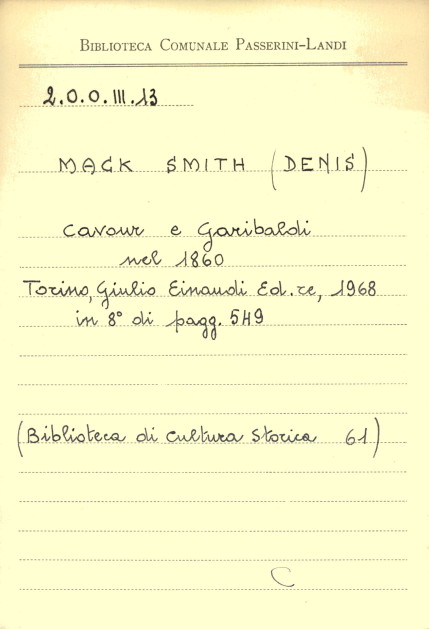 BIBLIOTECA COMUNALE PASSERINI-LANDI
2.O.O.III.13
MACK SMITH (DENIS)
Cavour e Garibaldi
nel 1860
Torino, Giulio Einaudi Ed.re, 1968
in 8° di pagg. 549
(Biblioteca di cultura storica 61)
C